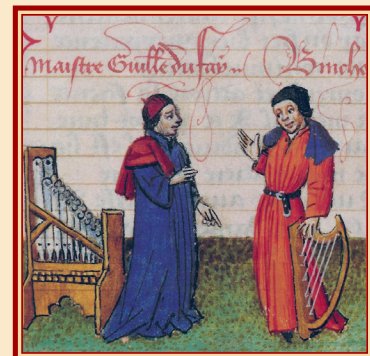 Maistre Guillẽ dufaÿ Binche